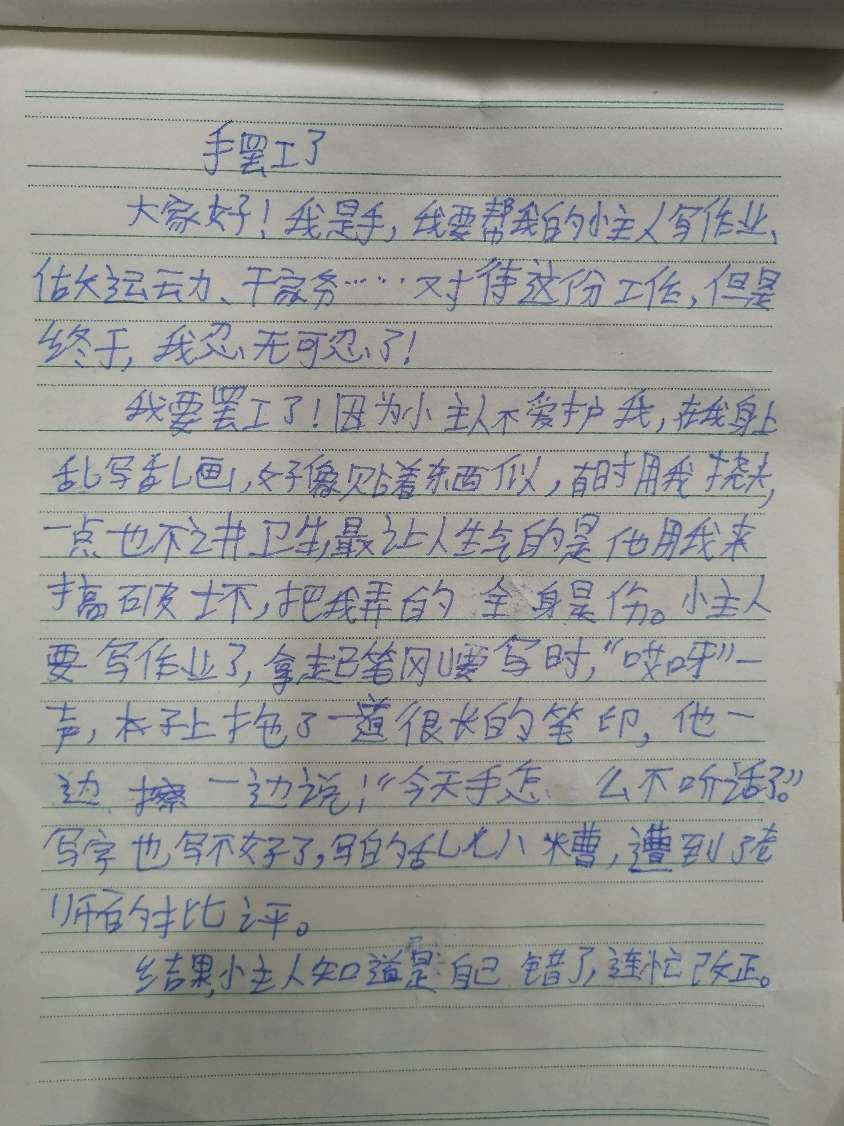 手罢工了
大家好！我是手，我要帮我的小主人写作业、
估大运动、干家务……对待这份工作，但是
终于，我忍无可忍了！
我要罢工了！因为小主人不爱护我，在我身上
乱写乱画，好像贴着东西似，有时用我挠头，
一点也不讲卫生，最让人生气的是他用我来
搞破坏，把我弄的全身是伤。小主人
要写作业了，拿起笔刚要写时，“哎呀”一
声，本子上拖了一道很长的笔印，他一
边擦一边说；“今天手怎么不听话了。”
写字也写不好了，写的乱七八糟，遭到了老
师的批评。
结果，小主人知道是自己错了，连忙改正。